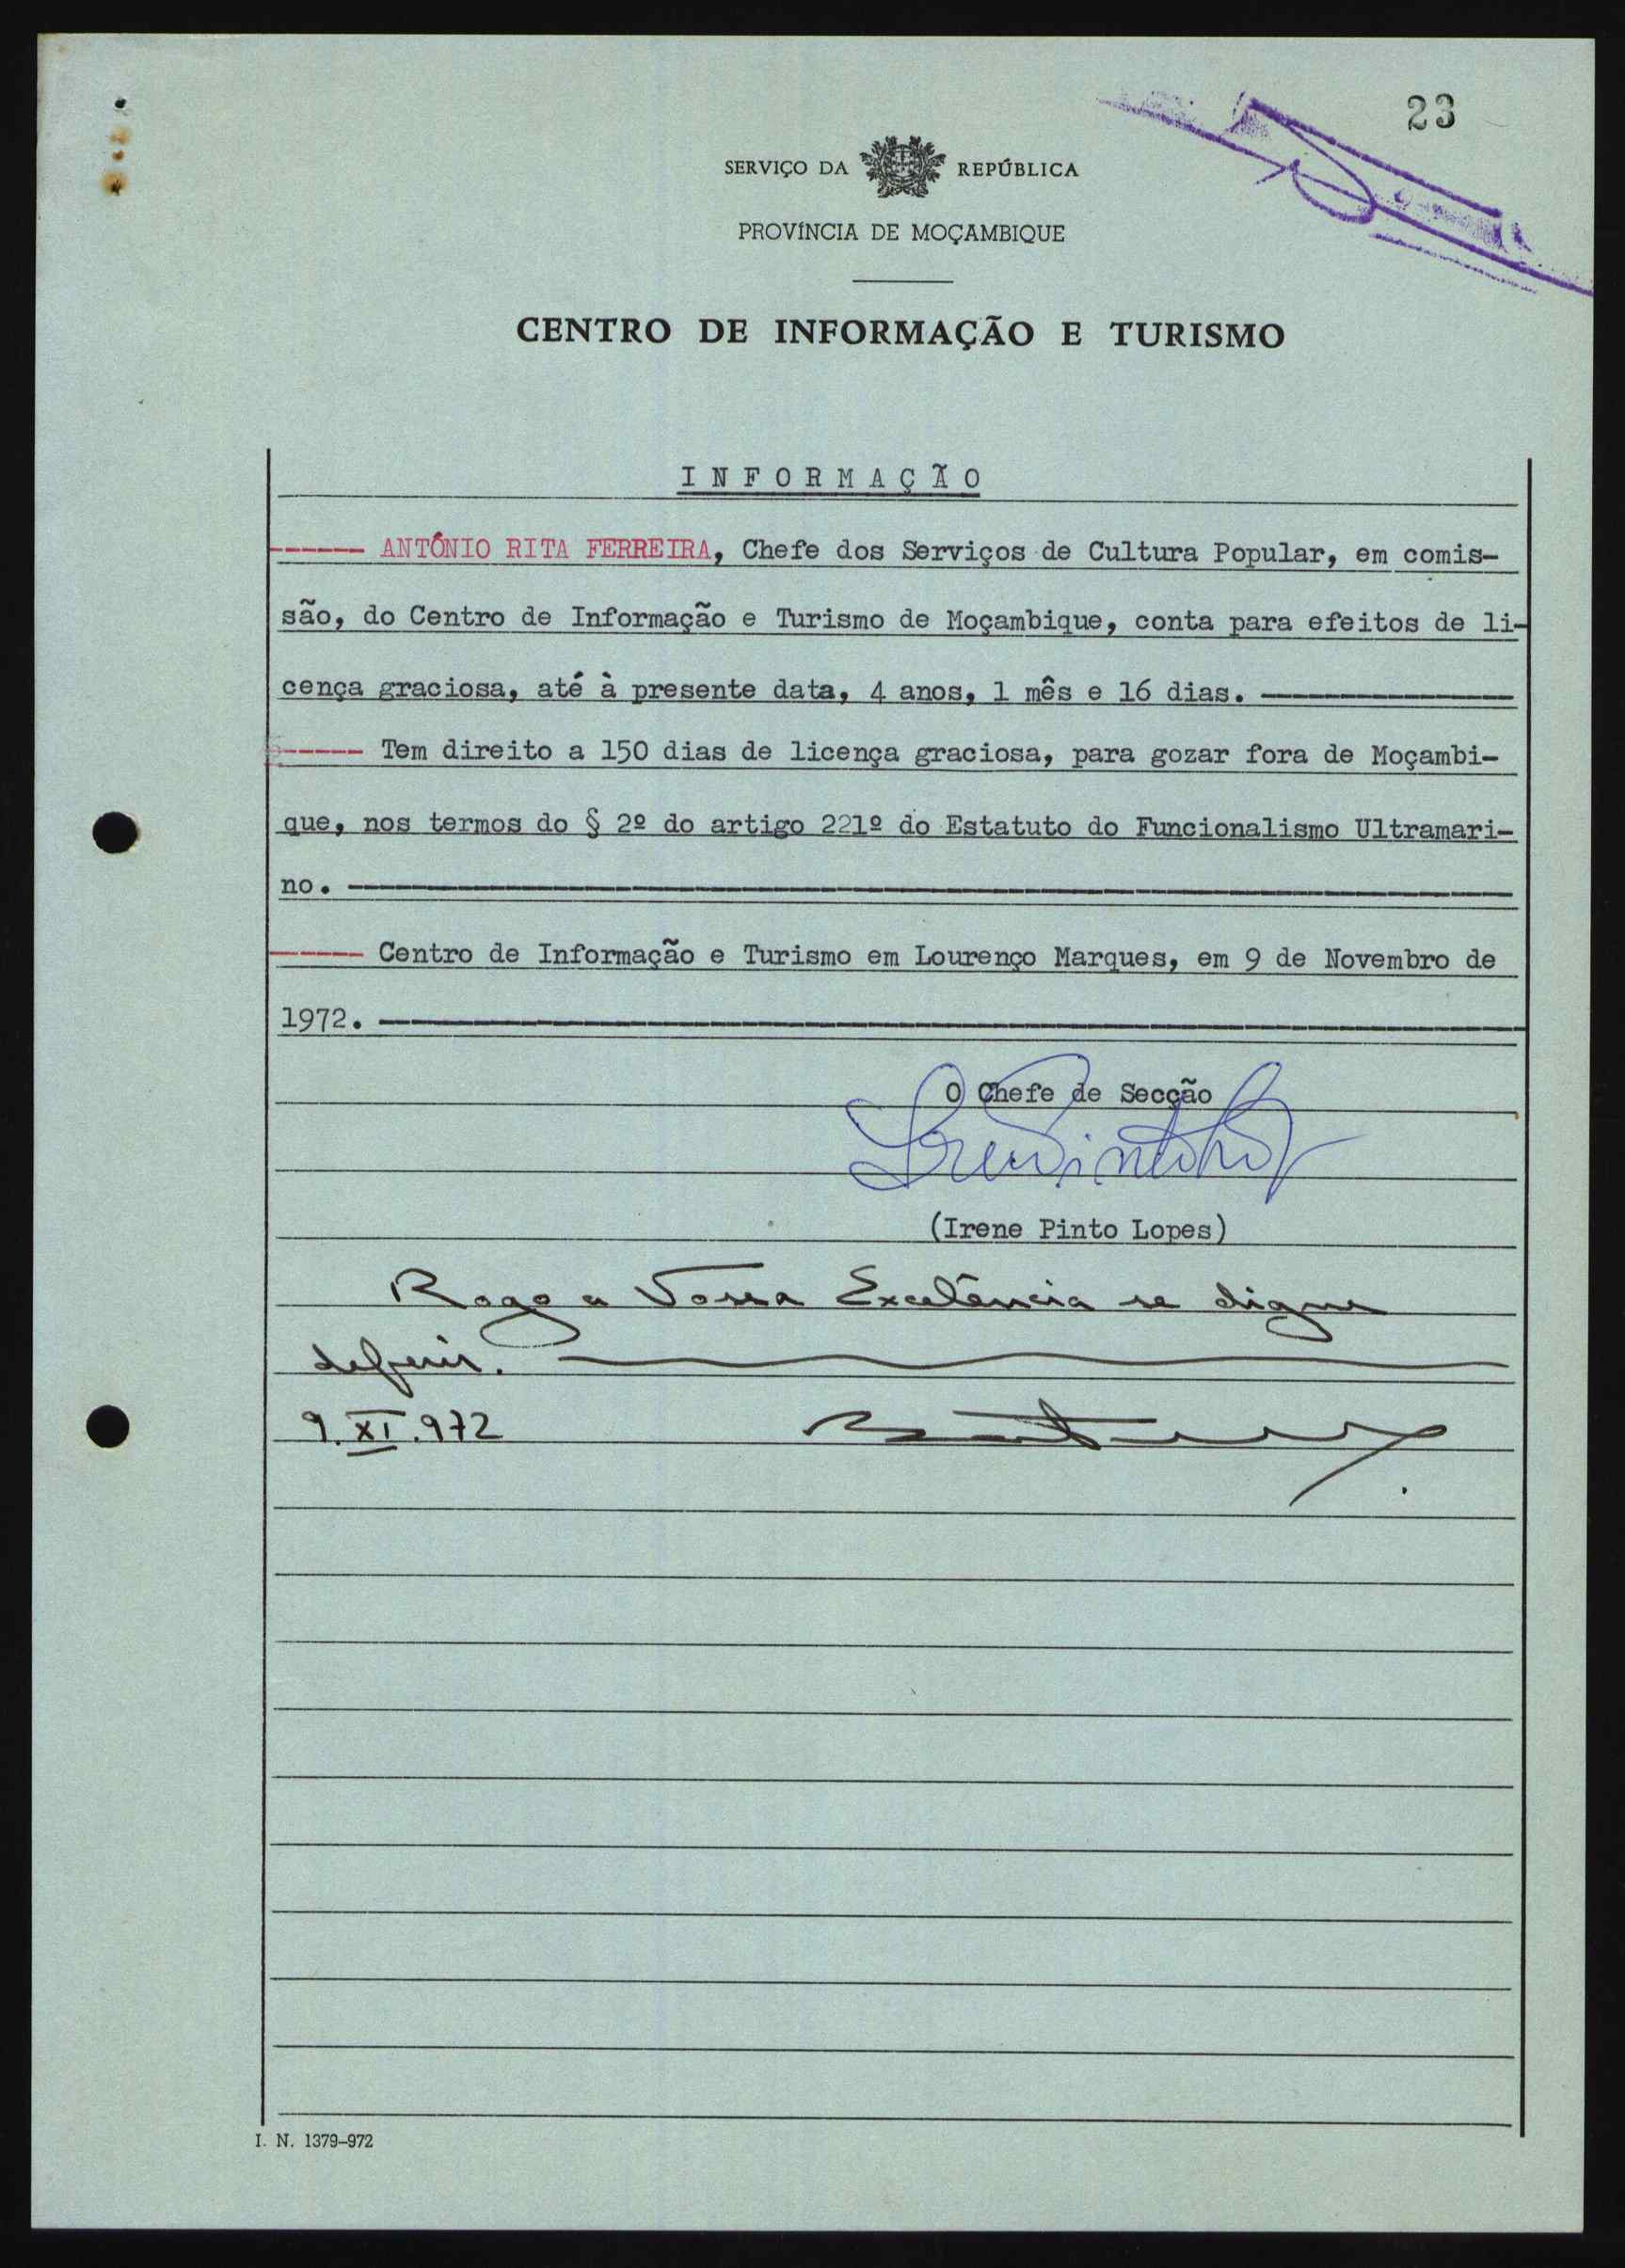 23
SERVIÇO DA REPÚBLICA
PROVÍNCIA DE MOÇAMBIQUE
CENTRO DE INFORMAÇÃO E TURISMO
INFORMAÇÃO
------ ANTÓNIO RITA FERREIRA, Chefe dos Serviços de Cultura Popular, em comis-
são, do Centro de Informação e Turismo de Moçambique, conta para efeitos de li-
cença graciosa, até à presente data, 4 anos, 1 mês e 16 dias. ------
------ Tem direito a 150 dias de licença graciosa, para gozar fora de Moçambi-
que, nos termos do § 2º do artigo 221º do Estatuto do Funcionalismo Ultramari-
no. ------
------ Centro de Informação e Turismo em Lourenço Marques, em 9 de Novembro de
1972. ------
O Chefe de Secção
(Irene Pinto Lopes)
Rogo a Vossa Excelência se digne
deferir.
9.XI.972
I. N. 1379-972